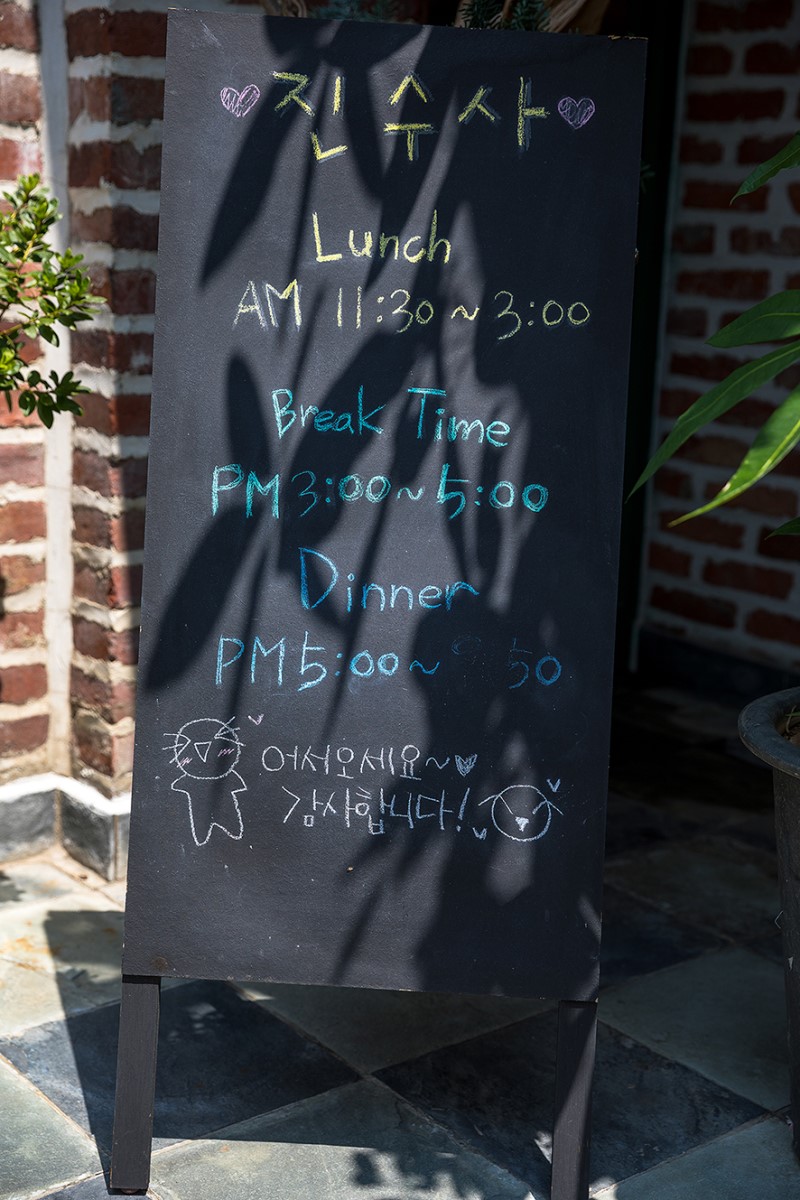 진수사
Lunch
AM 11:30 ~ 3:00
Break Time
PM 3:00 ~ 5:00
Dinner
PM 5:00 ~
어서오세요~
감사합니다!